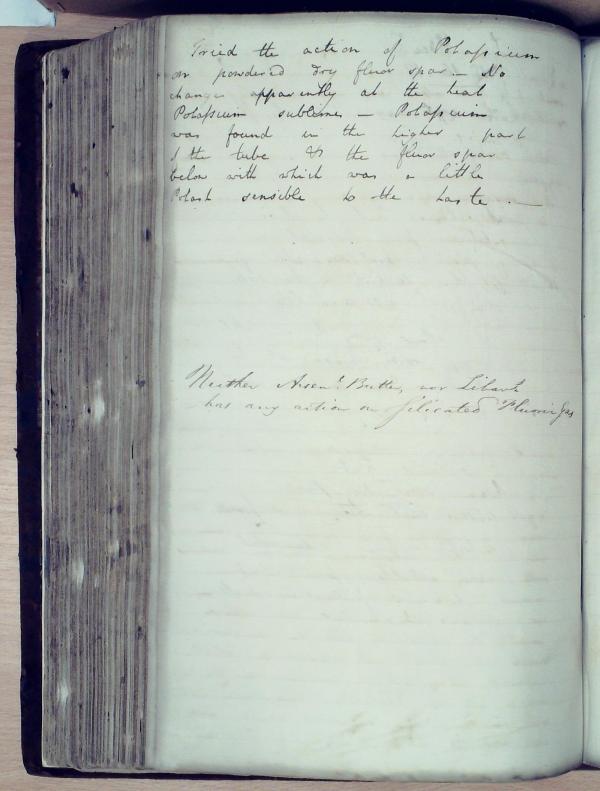 Tried the action of Potassium
on powdered dry fluor spar — No
change apparently at the heat
Potassium sublimes — Potassium
was found in the higher part
of the tube & the fluor spar
below with which was a little
Potash sensible to the taste. —
Neither Arsen<sup>l</sup>. Butter, nor Libav<sup>s</sup>
has any action on Silicated Fluoric Gas